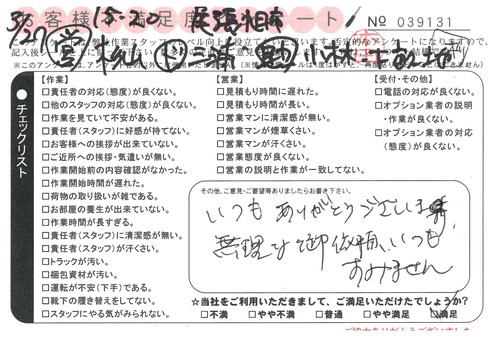 お客様満足度アンケート No 039131
15-20
【作業】
□責任者の対応(態度)が良くない。
□他のスタッフの対応(態度)が良くない。
□作業を見ていて不安がある。
□責任者(スタッフ)に好感が持てない。
□お客様への挨拶が出来ていない。
□ご近所への挨拶・気遣いが無い。
□作業開始前の内容確認がなかった。
□作業開始時間が遅れた。
□荷物の取り扱いが雑である。
□お部屋の養生が出来ていない。
□作業時間が長すぎる。
□責任者(スタッフ)に清潔感が無い。
□責任者(スタッフ)が汗くさい。
□トラックが汚い。
□梱包資材が汚い。
□運転が不安(下手)である。
□靴下の履き替えをしてない。
□スタッフにやる気がみられない。
チェックリスト
【営業】
□見積もり時間に遅れた。
□見積もり時間が長い。
□営業マンに清潔感が無い。
□営業マンが煙草くさい。
□営業マンが汗くさい。
□営業態度が良くない。
□営業の説明と作業が一致してない。
【受付・その他】
□電話の対応が良くない。
□オプション業者の説明
・作業が良くない。
□オプション業者の対応
(態度)が良くない。
その他、ご意見・ご要望等ありましたらお書き下さい。
いつもありがとうございます。
無理な御依頼、いつも
すみません
☆当社をご利用いただきまして、ご満足いただけたでしょうか?
□不満 □やや不満 □普通 □やや満足 □満足
ご協力ありがとうございました